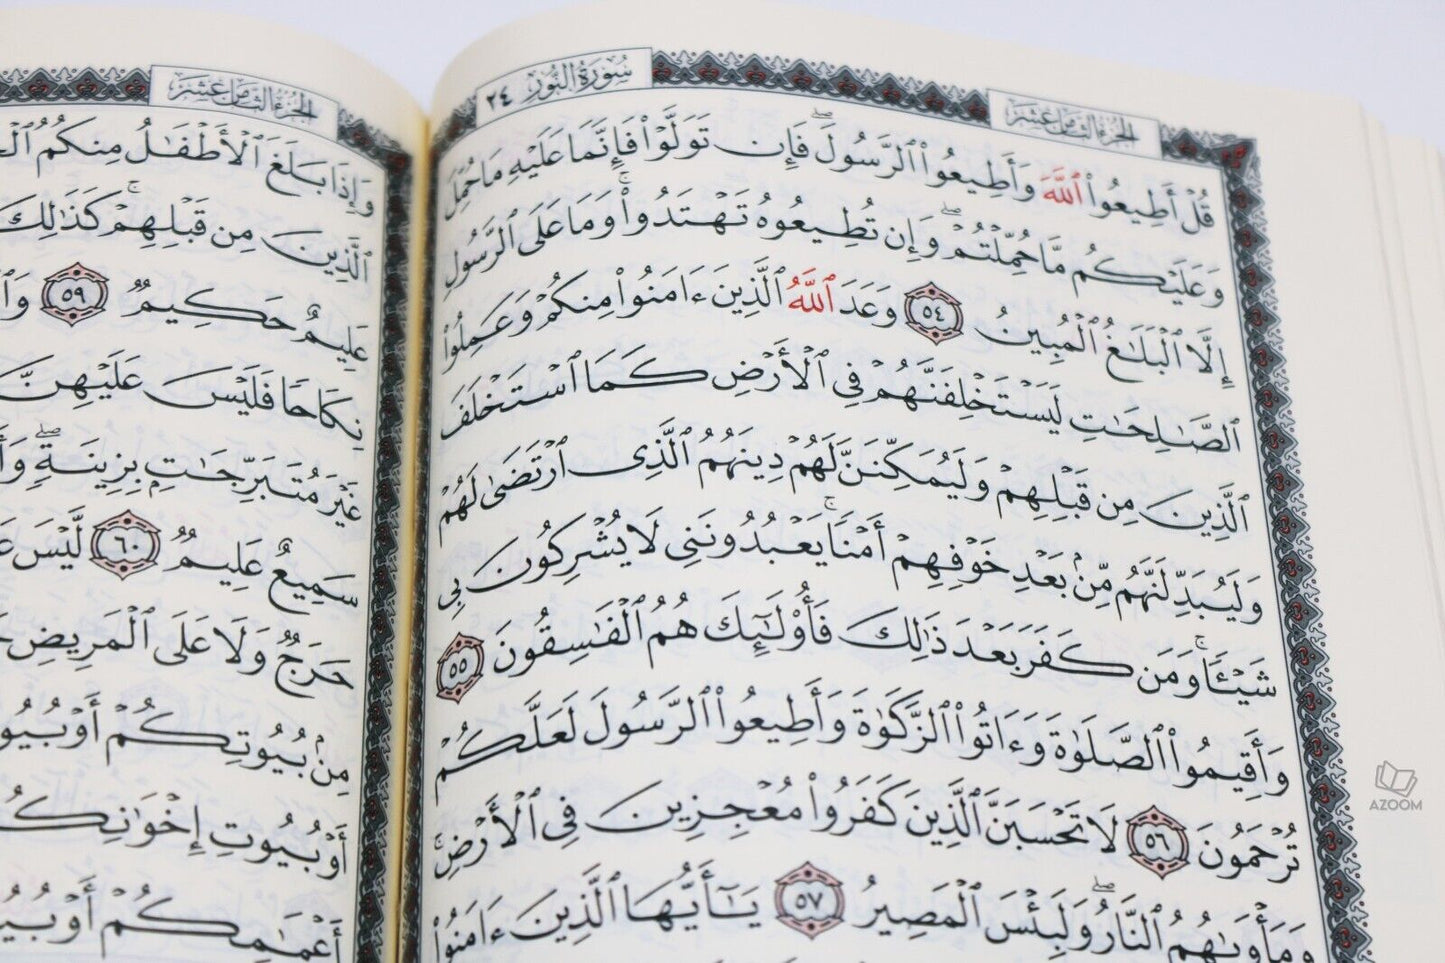 الجزء الثامن عشر
سورة النور ٢٤
قُلْ أَطِيعُوا۟ ٱللَّهَ وَأَطِيعُوا۟ ٱلرَّسُولَ ۖ فَإِن تَوَلَّوْا۟ فَإِنَّمَا عَلَيْهِ مَا حُمِّلَ
وَعَلَيْكُم مَّا حُمِّلْتُمْ ۖ وَإِن تُطِيعُوهُ تَهْتَدُوا۟ ۚ وَمَا عَلَى ٱلرَّسُولِ
إِلَّا ٱلْبَلَـٰغُ ٱلْمُبِينُ ٥٤ وَعَدَ ٱللَّهُ ٱلَّذِينَ ءَامَنُوا۟ مِنكُمْ وَعَمِلُوا۟
ٱلصَّـٰلِحَـٰتِ لَيَسْتَخْلِفَنَّهُمْ فِى ٱلْأَرْضِ كَمَا ٱسْتَخْلَفَ
ٱلَّذِينَ مِن قَبْلِهِمْ وَلَيُمَكِّنَنَّ لَهُمْ دِينَهُمُ ٱلَّذِى ٱرْتَضَىٰ لَهُمْ
وَلَيُبَدِّلَنَّهُم مِّنۢ بَعْدِ خَوْفِهِمْ أَمْنًا ۚ يَعْبُدُونَنِى لَا يُشْرِكُونَ بِى
شَيْـًٔا ۚ وَمَن كَفَرَ بَعْدَ ذَٰلِكَ فَأُو۟لَـٰٓئِكَ هُمُ ٱلْفَـٰسِقُونَ ٥٥
وَأَقِيمُوا۟ ٱلصَّلَوٰةَ وَءَاتُوا۟ ٱلزَّكَوٰةَ وَأَطِيعُوا۟ ٱلرَّسُولَ لَعَلَّكُمْ
تُرْحَمُونَ ٥٦ لَا تَحْسَبَنَّ ٱلَّذِينَ كَفَرُوا۟ مُعْجِزِينَ فِى ٱلْأَرْضِ ۚ
وَمَأْوَىٰهُمُ ٱلنَّارُ ۖ وَلَبِئْسَ ٱلْمَصِيرُ ٥٧ يَـٰٓأَيُّهَا ٱلَّذِينَ ءَامَنُوا۟
الجزء الثامن عشر
وَإِذَا بَلَغَ ٱلْأَطْفَـٰلُ مِنكُمُ
ٱلَّذِينَ مِن قَبْلِهِمْ ۚ كَذَٰلِكَ
عَلِيمٌ حَكِيمٌ ٥٩
نِكَاحًا فَلَيْسَ عَلَيْهِنَّ
غَيْرَ مُتَبَرِّجَـٰتٍۭ بِزِينَةٍ ۖ
سَمِيعٌ عَلِيمٌ ٦٠ لَّيْسَ
حَرَجٌ وَلَا عَلَى ٱلْمَرِيضِ
مِنۢ بُيُوتِكُمْ أَوْ
أَوْ بُيُوتِ
أَعْمَـٰمِكُمْ أَوْ
AZOOM